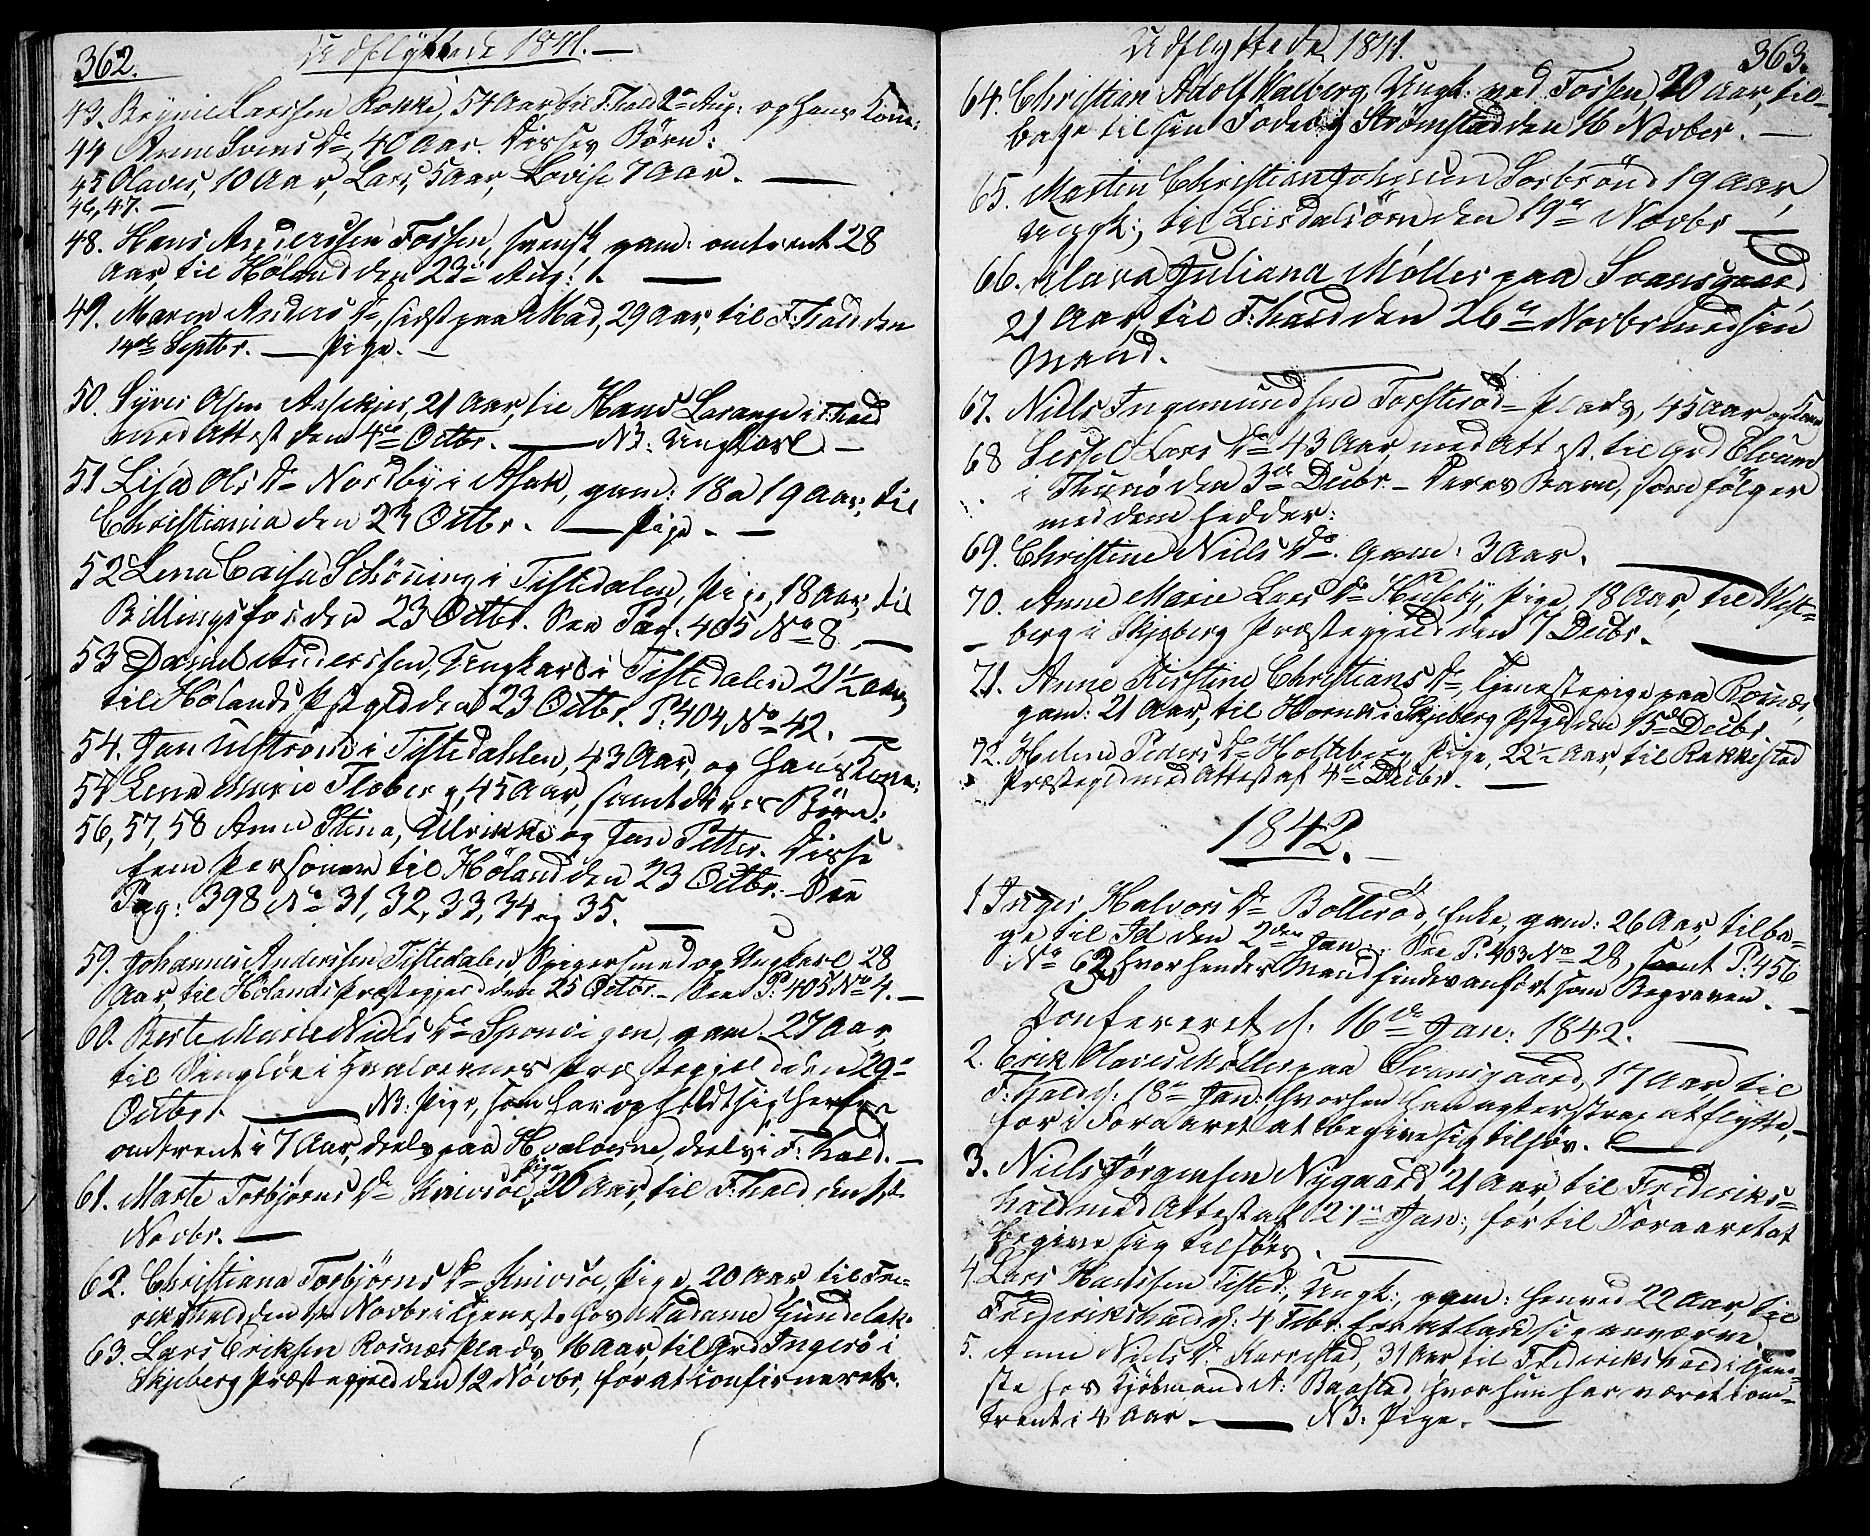 362. Udflyttede 1841. —
43. Larssen Rokke, 54 Aar til F:hald 2den Aug: og hans Kone:
44 Anne Svens Dr 40 Aar. Disses Børn:
45 Olaves, 10 Aar, Lars, 5 Aar, Lovise 7 Aar. —
46, 47. —
48. Hans Anderssen Fossen, svensk, gam: omtrent 28
Aar, til Høland den 23de Aug: —
49. Maren Anders Dr, sidst paa Mad, 29 Aar, til F:hald den
14de Septbr. — Pige. —
50. Syver Olsen Asperkjer, 21 Aar, til Hans Lorange i F:hald
med Attest den 4de Octbr. — NB: Ungkarl —
51 Lisa Ols Dr Nordby i Asak, gam: 18 a 19 Aar, til
Christiania den 23 Octbr. — Pige. —
52 Lena Caisa Schönning i Tistedalen, Pige, 18 Aar, til
Billingsfos den 23 Octbr. See Pag. 405 No 8. —
53 Daniel Anderssen, Ungkarl i Tistedalen 21½ Aar,
til Hølands Pstgld den 23 Octbr. P. 404 No 42. —
54. Jan Ulstrøm i Tistedahlen, 43 Aar, og hans Kone:
54 Lena Marie Floberg, 45 Aar, samt deres Børn:
56, 57, 58 Anne Stina, Ulrikke og Jan Petter. Disse
fem Personer til Høland den 23 Octbr. See
Pag: 398 No 31, 32, 33, 34 og 35. —
59. Johannes Anderssen Tistedalen, Spigersmed og Ungkarl 28
Aar, til Hølands Præstegjeld den 25 Octbr. — See P: 405 No 4. —
60. Berte Marie Niels Dr Sponvigen, gam. 27 Aar,
til Singløe i Hvaloernes Præstegjeld den 29de
Octbr. — NB: Pige, som har opholdt sig herfra
omtrent i 7 Aar, deels paa Hvaloerne, deels i F:hald. —
61. Marte Torbjørns Dr Knivsøe, Pige 26 Aar, til F:hald den 1ste
Novbr. —
62. Christiana Torbjørns Dr Knivsøe, Pige 20 Aar til Fre-
rikshald den 1ste Novbr i Tjeneste hos Madame Gundelak.
63. Lars Eriksen Rosnæs Plads 16 Aar, til Grd Ingerø i
Skjeberg Præstegjeld den 12 Novbr, for at confirmeres.
Udflyttede 1841. 363.
64. Christian Adolf Walberg, Ungk: ved Fossen, 20 Aar, til-
bage til sin Fødeby Strømstad den 16 Novber. —
65. Morten Christian Johnsen Sorbrønd 19 Aar,
Ungk:, til Leirdalsøren den 19de Novbr —
66. Klara Juliana Møller paa Svansgaard
21 Aar, til F:hald den 26de Novbr med sin
Mand.
67. Niels Ingemundsen Torsterød-Plads, 45 Aar og Kone
68 Sessel Lars Dr 43 Aar med Attest til Grd
i Thunø den 3de Decbr. — Deres Barn, som følger
med dem hedder:
69. Christine Niels Dr. Gam: 3 Aar.
70. Anne Marie Lars Dr Huseby, Pige, 18 Aar, til West-
— berg i Skjeberg Præstegjeld den 7 Decbr. —
71. Anne Kirstine Christians Dr, Tjenestepige paa Rosnæs,
gam: 21 Aar, til Hornes i Skjeberg Pstgld den 15de Decbr
72. Helene Peders Dr Holteberg, Pige, 22½ Aar, til Rakkestad
Præstegld med Attest af 4de Decbr. —
1842. —
1 Inger Halvors Dr Bollerød, Enke, gam: 26 Aar, tilba-
ge til Id den 2den Jan: See P: 403 No 28, samt P: 456
No 62, hvor hendes Mand findes anført som Begraven. —
Confereret d. 16de Jan: 1842. —
2. Erik Olaves Møller paa Svansgaard, 17 Aar, til
F:hald d. 18de Jan: hvorhen han agter strax at flytte,
for i Foraaret at begive sig tilsøs. —
3. Niels Jørgensen Nygaard 21 Aar, til Frideriks-
hald med Attest af 21de Jan:, for til Foraaret at
begive sig tilsøes. —
4. Lars Hanssen Tisted, Ungk:, gam: henved 22 Aar, til
Frederikshald d: 4 Febr. for at lade sig anværve.
5. Anne Niels Dr Karrestad, 31 Aar til Frederikshald i Tjene-
ste hos Kjøbmand A: Baastad, hvor hun har været i om-
trent i 4 Aar. — NB: Pige. —